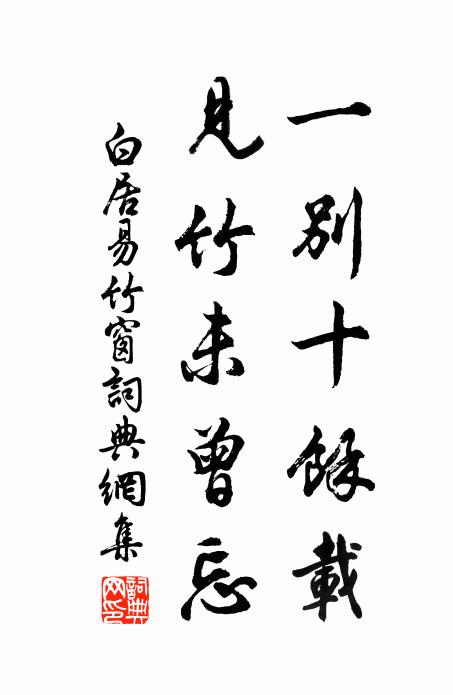 一別十餘載
見竹未曾忘
白居易竹窗詞典網集
詞典網印